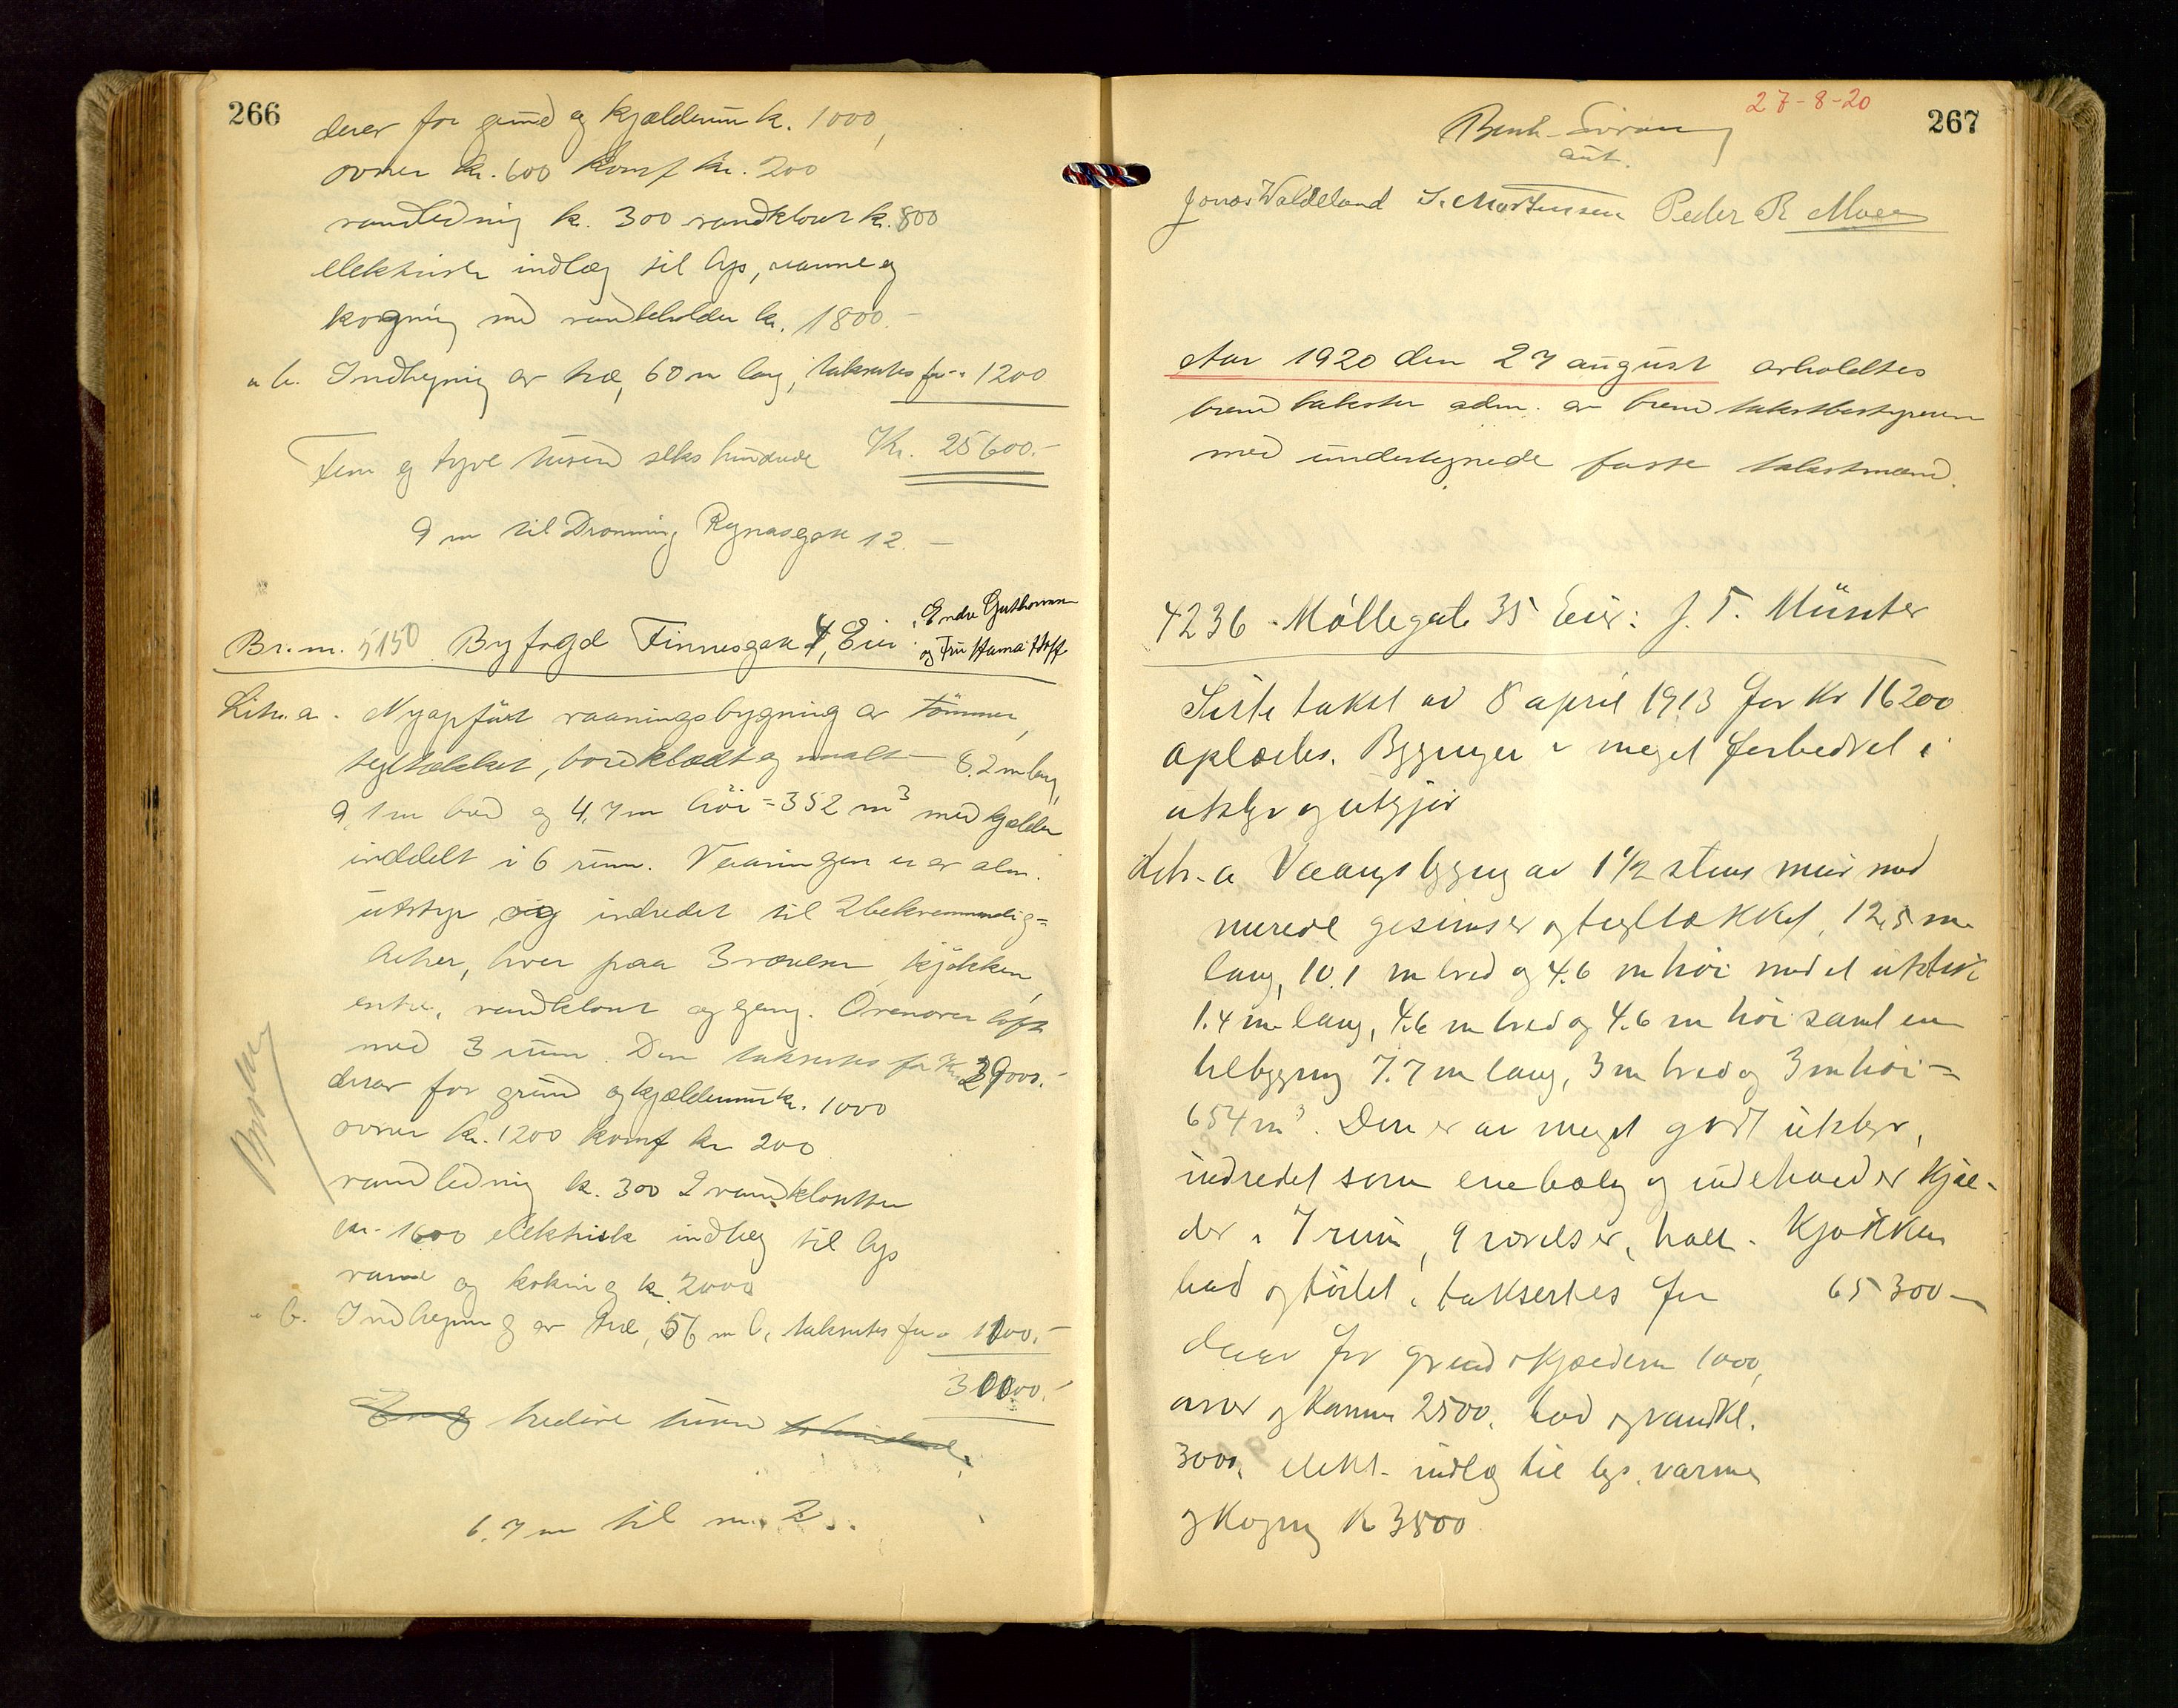 266
derav for grund og kjælderum k. 1000,
ovner kr. 600 komf kr. 200
vandledning k. 300 vandkloset k. 800
elektrisk indlæg til lys, varme og
kogning med vandbeholder kr. 1800.-
" b. Indhegning av træ, 60 m lang, taksertes for " 1200
Fem og tyve tusen seks hundrede Kr. 25600.-
9 m til Dronning Ragnasgate 12.-
Br. nr. 5150 Byfogd Finnesgate 4, Eier: Endre Guthormsen
og Fru Hanna Hoff
Litr. a. Nyopført vaaningsbygning av tømmer,
tegltækket, bordklædt og malt - 8.2 m lang,
9,1 m bred og 4,7 m høi = 352 m³ med kjælder
inddelt i 6 rum. Vaaningen er av alm.
utstyr og indredet til 2 bekvemmelig=
heter, hver paa 3 værelser, kjøkken,
entre, vandkloset og gang. Ovenover loft
med 3 rum. Den taksertes for Kr. 29000.-
derav for grund og kjælderum kr. 1000
ovner kr. 1200 komf kr 200
vandledning k. 300 2 vandklosetter
kr. 1600 elektrisk indlæg til lys
varme og koking kr. 2000
" b. Indhegning av træ, 56 m l, taksertes for " 1100.-
30100.-
tredive tusen
6.7 m til nr. 2.
27-8-20
267
aut.
Jonas Waldeland S. Mortensen Peder R. Moen
Aar 1920 den 27 august avholdtes
brandtakster adm. av brandtakstbestyreren
med undertegnede faste takstmænd.
4236 Møllegate 35 Eier: J. T. Münter
Siste takst av 8 april 1913 for Kr 16200
oplæstes. Bygningen er meget forbedret i
utstyr og utgjør
Litr. a Vaaningsbygning av 1½ stens mur med
murede gesimser og tegltækket, 12,5 m
lang, 10.1 m bred og 4.6 m høi med et utstik
1.4 m lang, 4.6 m bred og 4.6 m høi samt en
tilbygning 7.7 m lang, 3 m bred og 3 m høi =
654 m³. Den er av meget godt utstyr,
indredet som enebolig og indeholder kjæl-
der i 7 rum, 9 værelser, hall, kjøkken
bad og toilet, taksertes for 65300-
derav for grund & kjælderum 1000,
ovner og kamin 2500, bad og vandkl.
3000, elekt. indlæg til lys, varme
og kogning Kr 3500